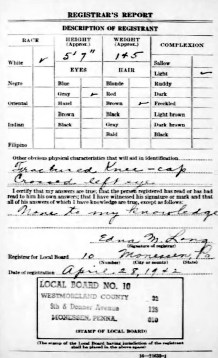 REGISTRAR'S REPORT
DESCRIPTION OF REGISTRANT
RACE HEIGHT (Approx.) WEIGHT (Approx.) COMPLEXION
5' 7" 145
White ✓ Sallow
EYES HAIR Light ✓
Negro Blue Blonde Ruddy
Gray ✓ Red Dark
Oriental Hazel Brown ✓ Freckled
Brown Black Light brown
Indian Black Gray Dark brown
Bald Black
Filipino
Other obvious physical characteristics that will aid in identification
Knee-cap
Crossed left eye
I certify that my answers are true; that the person registered has read or has had
read to him his own answers; that I have witnessed his signature or mark and that
all of his answers of which I have knowledge are true, except as follows:
None to my knowledge
Edna M. Long
(Signature of registrar)
Registrar for Local Board 10 Monessen, Pa
(Number) (City or county) (State)
Date of registration April 28, 1942
LOCAL BOARD NO. 10
WESTMORELAND COUNTY
5th & Donner Avenue
MONESSEN, PENNA.
(STAMP OF LOCAL BOARD)
(The stamp of the Local Board having jurisdiction of the registrant
shall be placed in the above space)